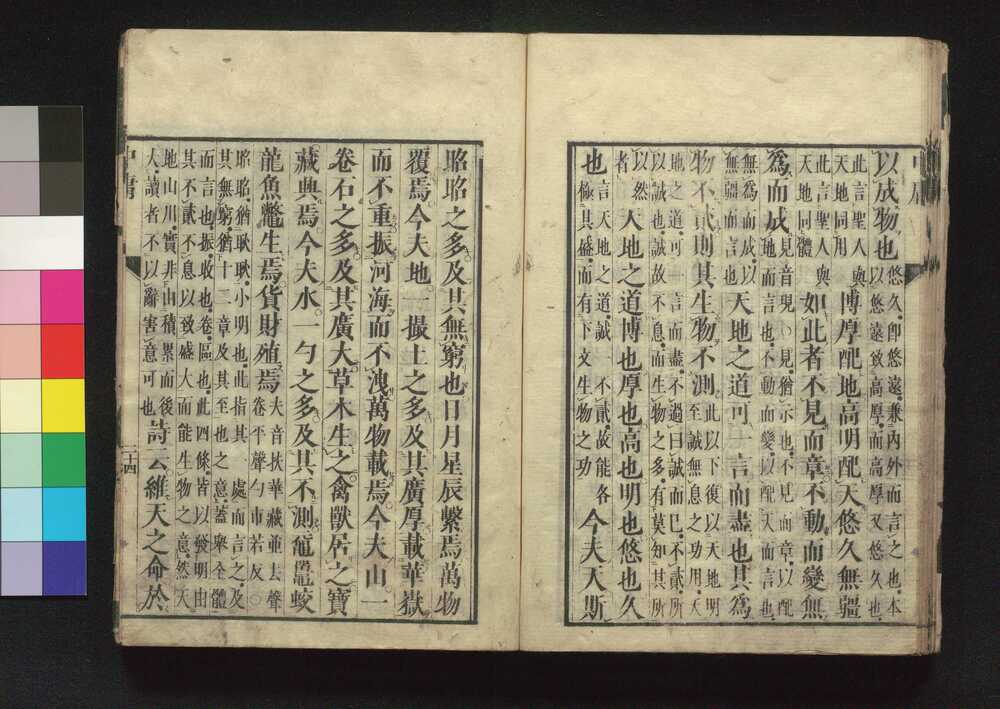 中庸
以成物也
悠久即悠遠兼內外而言之也本
以悠遠致高厚而高厚又悠久也
此言聖人與
天地同用
博厚配地高明配天悠久無疆
此言聖人與
天地同體
如此者不見而章不動而變無
為而成
見音現○見猶示也不見而章以配
地而言也不動而變以配天而言也
無為而成以
無疆而言也
天地之道可一言而盡也其為
物不貳則其生物不測
此以下復以天地明
至誠無息之功用天
地之道可一言而盡不過曰誠而已不貳所
以誠也誠故不息而生物之多有莫知其所
以然
者
天地之道博也厚也高也明也悠也久
也
言天地之道誠一不貳故能各
極其盛而有下文生物之功
今夫天斯
昭昭之多及其無窮也日月星辰繫焉萬物
覆焉今夫地一撮土之多及其廣厚載華嶽
而不重振河海而不洩萬物載焉今夫山一
卷石之多及其廣大草木生之禽獸居之寶
藏興焉今夫水一勺之多及其不測黿鼉蛟
龍魚鼈生焉貨財殖焉
夫音扶華藏並去聲
卷平聲勺市若反○
昭昭猶耿耿小明也此指其一處而言之及
其無窮猶十二章及其至也之意蓋舉全體
而言也振收也卷區也此四條皆以發明由
其不貳不息以致盛大而能生物之意然天
地山川實非由積累而後
大讀者不以辭害意可也
詩云維天之命於
中庸
二十四